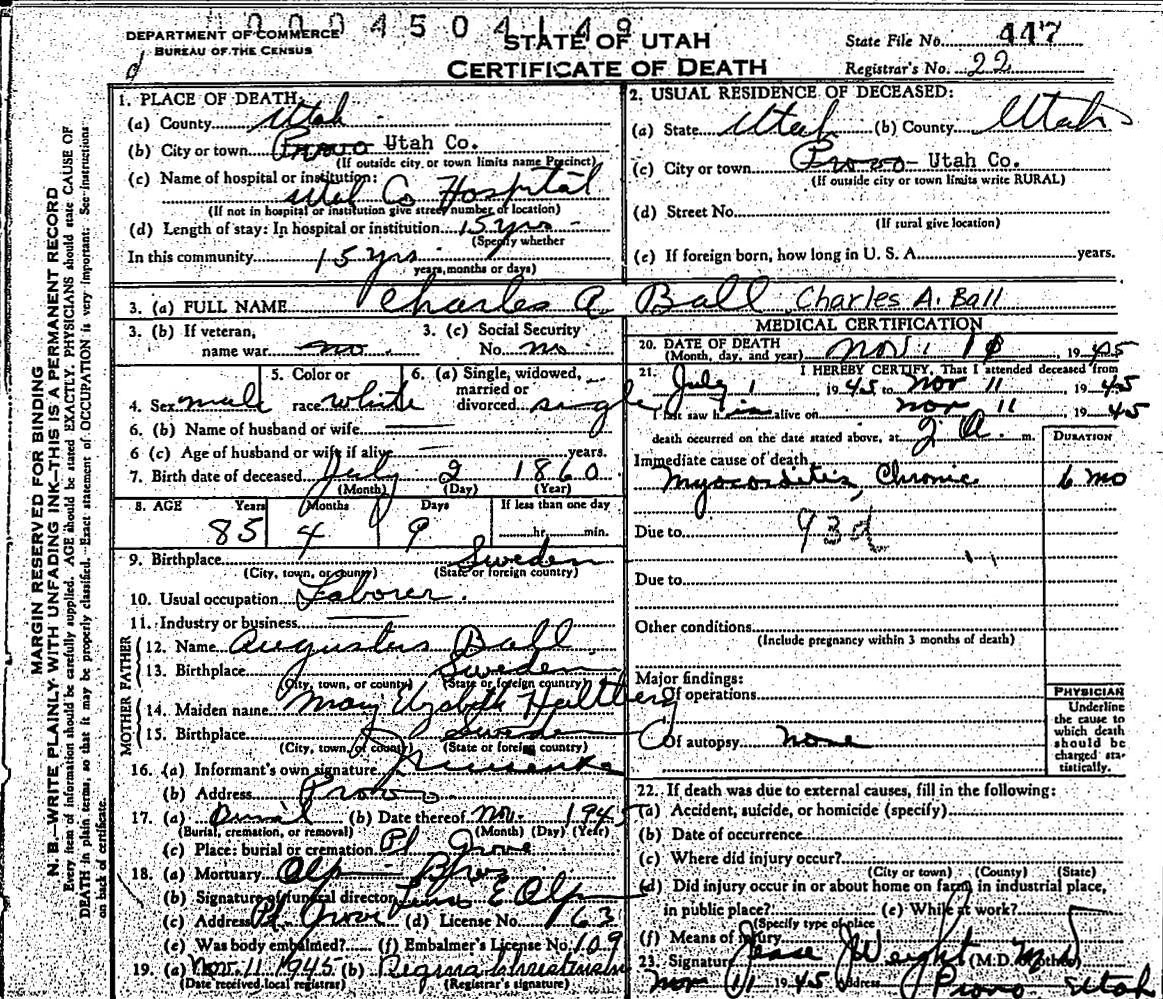 1000450 4149
DEPARTMENT OF COMMERCE
BUREAU OF THE CENSUS
STATE OF UTAH
CERTIFICATE OF DEATH
State File No. 447
Registrar's No. 22
d
MARGIN RESERVED FOR BINDING
N. B.—WRITE PLAINLY, WITH UNFADING INK—THIS IS A PERMANENT RECORD
Every item of information should be carefully supplied. AGE should be stated EXACTLY. PHYSICIANS should state CAUSE OF
DEATH in plain terms, so that it may be properly classified. Exact statement of OCCUPATION is very important. See instructions
on back of certificate.
1. PLACE OF DEATH:
(a) County Utah
(b) City or town Provo Utah Co.
(If outside city or town limits name Precinct)
(c) Name of hospital or institution:
Utah Co Hospital
(If not in hospital or institution give street number or location)
(d) Length of stay: In hospital or institution 15 yrs
(Specify whether
In this community 15 yrs
years, months or days)
2. USUAL RESIDENCE OF DECEASED:
(a) State Utah (b) County Utah
(c) City or town Provo Utah Co.
(If outside city or town limits write RURAL)
(d) Street No.
(If rural give location)
(e) If foreign born, how long in U. S. A. years.
3. (a) FULL NAME Charles A Ball Charles A. Ball
3. (b) If veteran, name war no
3. (c) Social Security No. no
4. Sex male
5. Color or race white
6. (a) Single, widowed, married or divorced single
6. (b) Name of husband or wife
6 (c) Age of husband or wife if alive years.
7. Birth date of deceased July 2 1860
(Month) (Day) (Year)
8. AGE Years Months Days If less than one day
85 4 9 hr. min.
9. Birthplace Sweden
(City, town, or county) (State or foreign country)
10. Usual occupation Laborer.
11. Industry or business
FATHER
12. Name Augustus Ball
13. Birthplace Sweden
(City, town, or county) (State or foreign country)
MOTHER
14. Maiden name Mary Elizabeth
15. Birthplace Sweden
(City, town, or county) (State or foreign country)
16. (a) Informant's own signature
(b) Address Provo
17. (a) Burial (b) Date thereof Nov. 1945
(Burial, cremation, or removal) (Month) (Day) (Year)
(c) Place: burial or cremation Pl Grove
18. (a) Mortuary Olp Bros
(b) Signature of funeral director E Olp
(c) Address Pl. Grove (d) License No. 163
(e) Was body embalmed? (f) Embalmer's License No. 109
19. (a) Nov. 11 1945 (b) Regina
(Date received local registrar) (Registrar's signature)
MEDICAL CERTIFICATION
20. DATE OF DEATH
(Month, day, and year) Nov. 11, 1945
21. I HEREBY CERTIFY, That I attended deceased from
July 1 1945 to Nov 11 1945
I last saw him alive on Nov 11, 1945
death occurred on the date stated above, at A. m.
DURATION
Immediate cause of death
Myocarditis, Chronic 6 mo
Due to 93d
Due to
Other conditions
(Include pregnancy within 3 months of death)
Major findings:
Of operations
Of autopsy None
PHYSICIAN
Underline
the cause to
which death
should be
charged sta-
tistically.
22. If death was due to external causes, fill in the following:
(a) Accident, suicide, or homicide (specify)
(b) Date of occurrence
(c) Where did injury occur?
(City or town) (County) (State)
(d) Did injury occur in or about home on farm, in industrial place,
in public place? (e) While at work?
(Specify type of place
(f) Means of injury
23. Signature Jesse J Weight MD (M.D. or other)
Nov 11 1945 Address Provo Utah